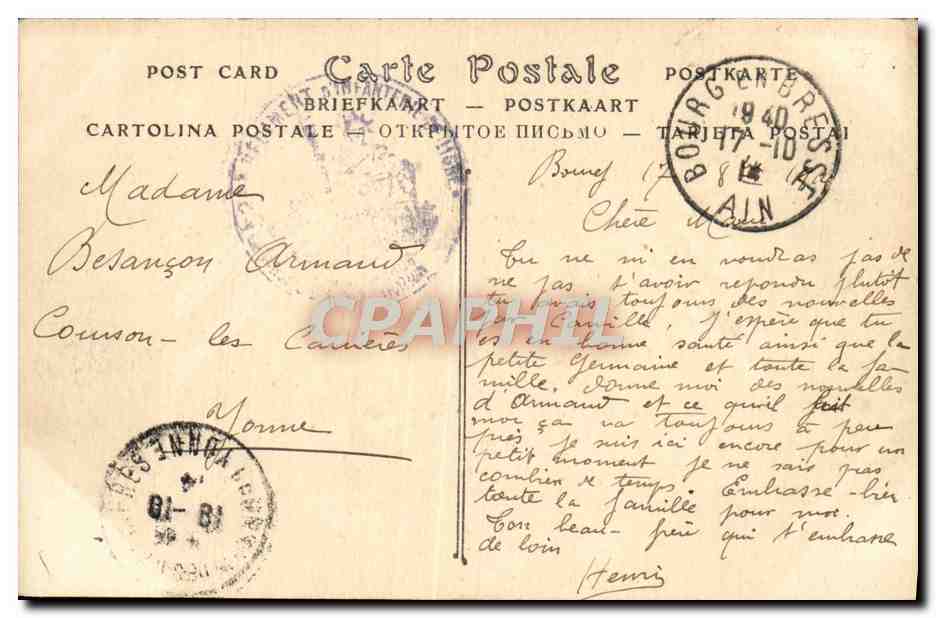 POST CARD Carte Postale POSTKARTE
BRIEFKAART — POSTKAART
CARTOLINA POSTALE — ОТКРЫТОЕ ПИСЬМО — TARJETA POSTAL
BOURG EN BRESSE
1940
17 -10
AIN
REGIMENT D'INFANTERIE
Madame
Besançon Armand
Courson - les Carrières
Yonne
YONNE
18 -18
Bourg 17 8
Chère Marie
Tu ne m'en voudras pas de
ne pas t'avoir repondu plutôt
tu avais toujours des nouvelles
par Camille. J'espère que tu
es en bonne santé ainsi que la
petite Germaine et toute la fa-
mille. Donne moi des nouvelles
d'Armand et ce qu'il fait
moi ça va toujours à peu
près. Je suis ici encore pour un
petit moment je ne sais pas
combien de temps. Embrasse-bien
toute la famille pour moi.
Ton beau-frère qui t'embrasse
de loin
Henri
CPAPHIL